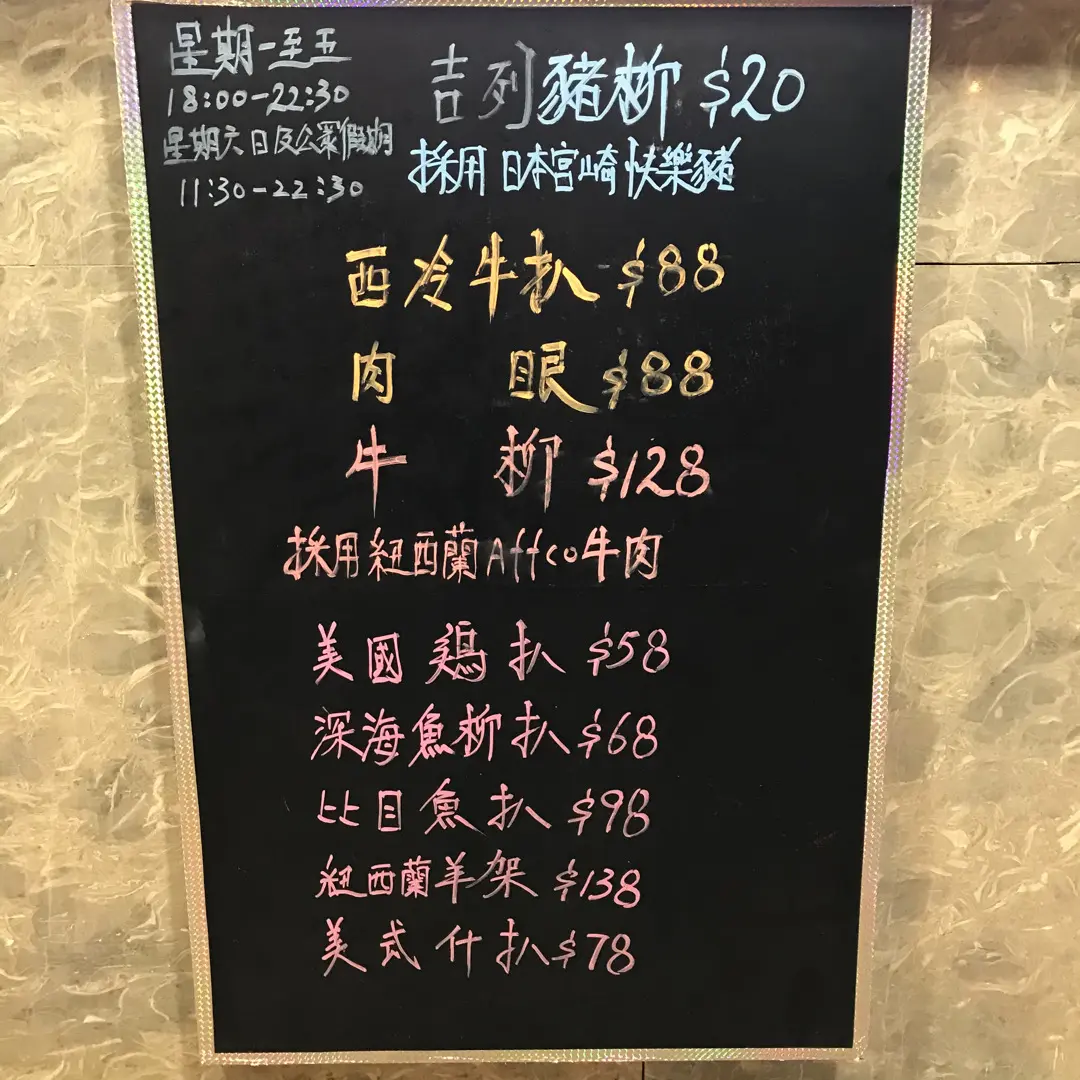 星期一至五
18:00-22:30
星期六日及公眾假期
11:30-22:30
吉列豬柳 $20
採用日本宮崎快樂豬
西冷牛扒 $88
肉眼 $88
牛柳 $128
採用紐西蘭Affco牛肉
美國鷄扒 $58
深海魚柳扒 $68
比目魚扒 $98
紐西蘭羊架 $138
美式什扒 $78